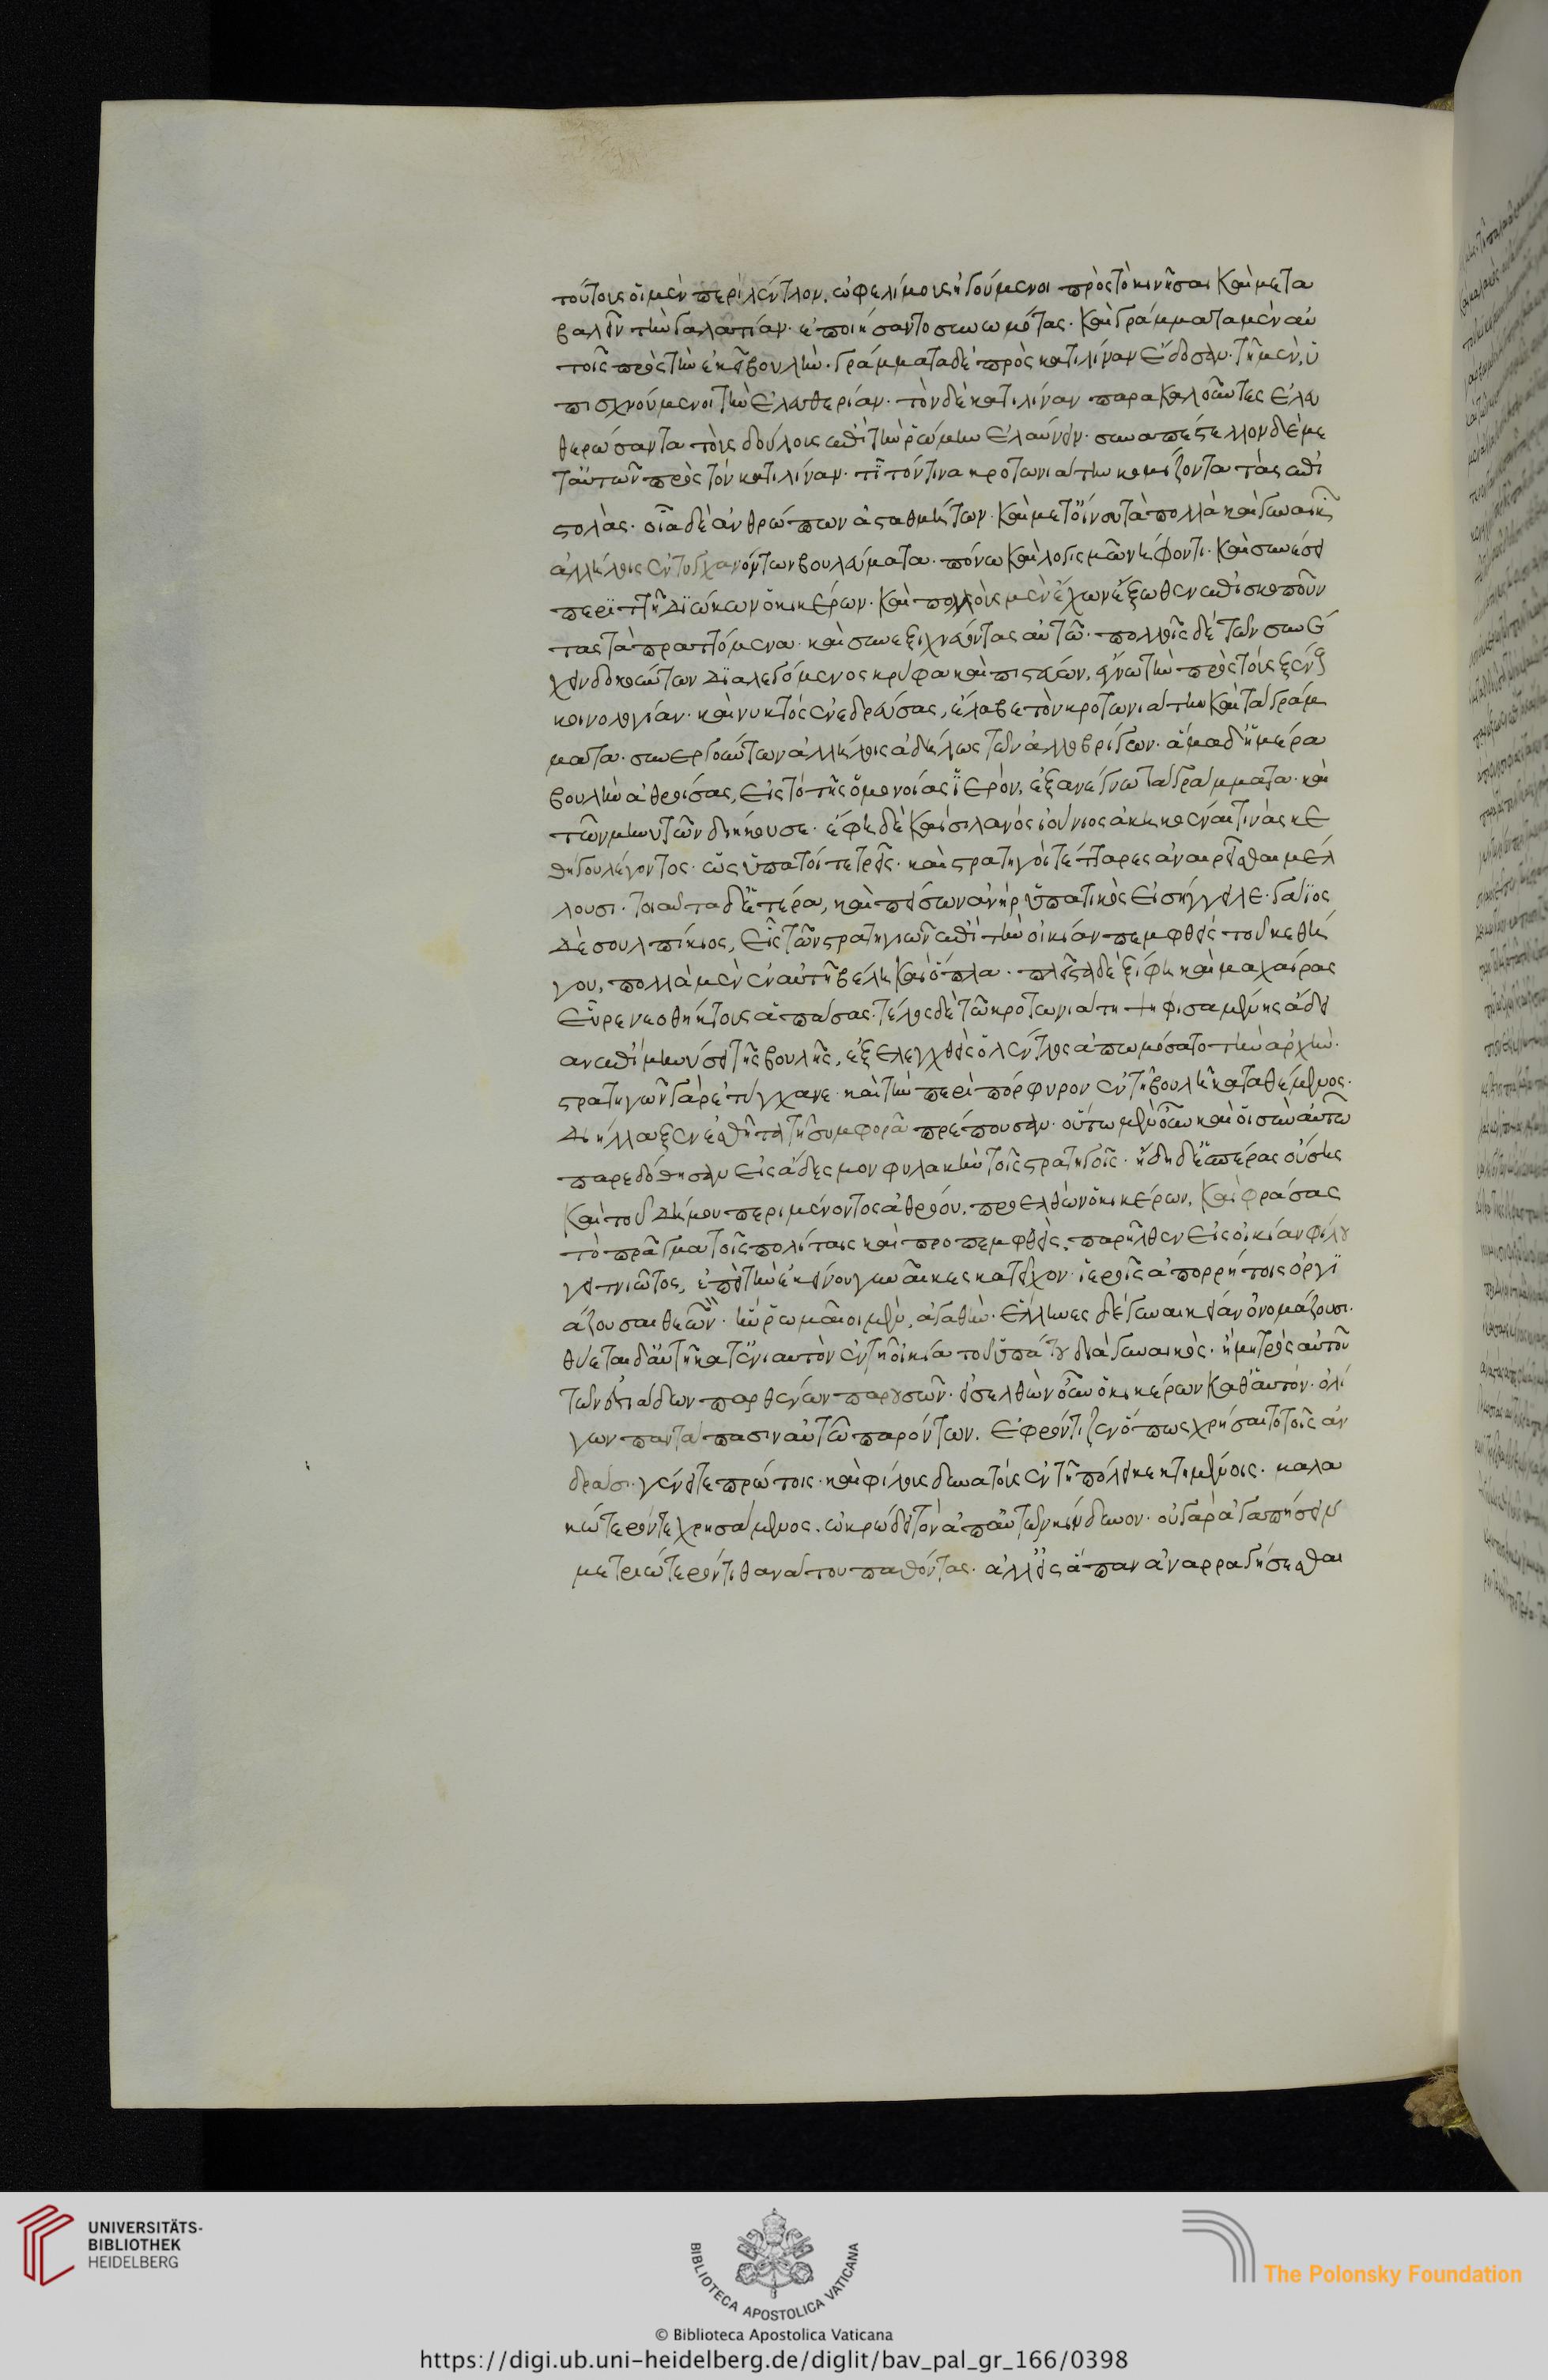 τούτοις οἱ μὲν περὶ λέντλον, ὠφελίμοις ἡγούμενοι πρὸς τὸ κινῆσαι καὶ μετα
βαλεῖν τὴν γαλατίαν· ἐποιήσαντο συνωμότας. καὶ γράμματα μὲν αὐ
τοῖς πρὸς τὴν ἐκεῖ βουλὴν· γράμματα δὲ πρὸς κατιλίναν ἔδοσαν· τῇ μὲν, ὑ
πισχνούμενοι τὴν ἐλευθερίαν· τὸν δὲ κατιλίναν παρακαλοῦντες ἐλευ
θερώσαντα τοὺς δούλους ἐπὶ τὴν ῥώμην ἐλαύνειν. συναπέστελλον δὲ με
τ' αὐτῶν πρὸς τὸν κατιλίναν· τῖτόν τινα κροτωνιάτην κομίζοντα τὰς ἐπι
στολάς. οἷα δὲ ἀνθρώπων ἀσταθμήτων καὶ μετ' οἴνου τὰ πολλὰ καὶ γυναικῶν
ἀλλήλοις ἐντυγχανόντων βουλεύματα· πόνω καὶ λογισμῶ νήφοντι· καὶ συνέσει
περιττῆ διώκων ὁ κικέρων· καὶ πολλοὺς μὲν ἔχων ἔξωθεν ἐπισκοποῦν
τας τὰ πραττόμενα· καὶ συνεξιχνεύοντας αὐτῶ· πολλοῖς δὲ τῶν συνέ
χειν δοκούντων διαλεγόμενος κρύφα καὶ πιστεύων, ἔγνω τὴν πρὸς τοὺς ξένους
κοινολογίαν· καὶ νυκτὸς ἐνεδρεύσας, ἔλαβε τὸν κροτωνιάτην καὶ τὰ γράμ
ματα· συνεργούντων ἀλλήλοις ἀδήλως τῶν ἀλλοβρίγων. ἅμα δ' ἡμέρα
βουλὴν ἀθροίσας, εἰς τὸ τῆς ὁμονοίας ἱερόν, ἐξανέγνω τὰ γράμματα· καὶ
τῶν μηνυτῶν διήκουσε. ἔφη δὲ καὶ σιλανὸς ἰούνιος ἀκηκοέναι τινὰς κε
θήγου λέγοντος· ὡς ὕπατοί τε τρεῖς· καὶ στρατηγοὶ τέτταρες ἀναιρεῖσθαι μέλ
λουσι. τοιαῦτα δ' ἕτερα, καὶ πείσων ἀνὴρ ὑπατικὸς εἰσήγγειλε· γάϊος
δὲ σουλπίκιος, εἷς τῶν στρατηγιῶν ἐπὶ τὴν οἰκίαν πεμφθεὶς τοῦ κεθή
γου, πολλὰ μὲν ἐν αὐτῆ βέλη καὶ ὅπλα· πλεῖστα δὲ ξίφη καὶ μαχαίρας
εὗρε νεοθήκτους ἁπάσας. τέλος δὲ τῶ κροτωνιάτη ψηφισαμένης ἄδει
αν ἐπὶ μηνύσει τῆς βουλῆς, ἐξελεγχθεὶς ὁ λέντλος ἀπωμόσατο τὴν ἀρχήν.
στρατηγῶν γὰρ ἐτύγχανε· καὶ τὴν περιπόρφυρον ἐν τῆ βουλῆ καταθέμενος·
διήλλαξεν ἐσθῆτα τῆ συμφορᾶ πρέπουσαν. οὗτος μὲν οὖν καὶ οἱ σὺν αὐτῶ
παρεδόθησαν εἰς ἄδεσμον φυλακὴν τοῖς στρατηγοῖς. ἤδη δ' ἑσπέρας οὔσης
καὶ τοῦ δήμου περιμένοντος ἀθρόου, προελθὼν ὁ κικέρων, καὶ φράσας
τὸ πρᾶγμα τοῖς πολίταις καὶ προπεμφθεὶς, παρῆλθεν εἰς οἰκίαν φίλου
γειτνιῶντος, ἐπεὶ τὴν ἐκείνου γυναῖκες κατεῖχον· ἱεροῖς ἀπορρήτοις ὀργι
άζουσαι θεῶν· ἣν ῥωμαῖοι μὲν, ἀγαθὴν· ἕλληνες δὲ γυναικείαν ὀνομάζουσι.
θύεται δ' αὐτῆ κατ' ἐνιαυτὸν ἐν τῆ οἰκία τοῦ ὑπάτου διὰ γυναικὸς· ἢ μητρὸς αὐτοῦ
τῶν ἑστιάδων παρθένων παρουσῶν. εἰσελθὼν οὖν ὁ κικέρων καθ' αὑτόν· ὀλί
γων παντάπασιν αὐτῶ παρόντων. ἐφρόντιζεν ὅπως χρήσαιτο τοῖς ἀν
δράσι. γένει τε πρώτοις· καὶ φίλοις δυνατοῖς ἐν τῆ πόλει κεκτημένοις. μαλα
κώτερόν τε χρησάμενος. ὠκρώδει τὸν ἀπ' αὐτῶν κίνδυνον. οὐ γὰρ ἀγαπήσειν
μετριώτερόν τι θανάτου παθόντας· ἀλλ' εἰς ἅπαν ἀναρραγήσεσθαι
UNIVERSITÄTS-
BIBLIOTHEK
HEIDELBERG
BIBLIOTECA APOSTOLICA VATICANA
The Polonsky Foundation
© Biblioteca Apostolica Vaticana
https://digi.ub.uni-heidelberg.de/diglit/bav_pal_gr_166/0398